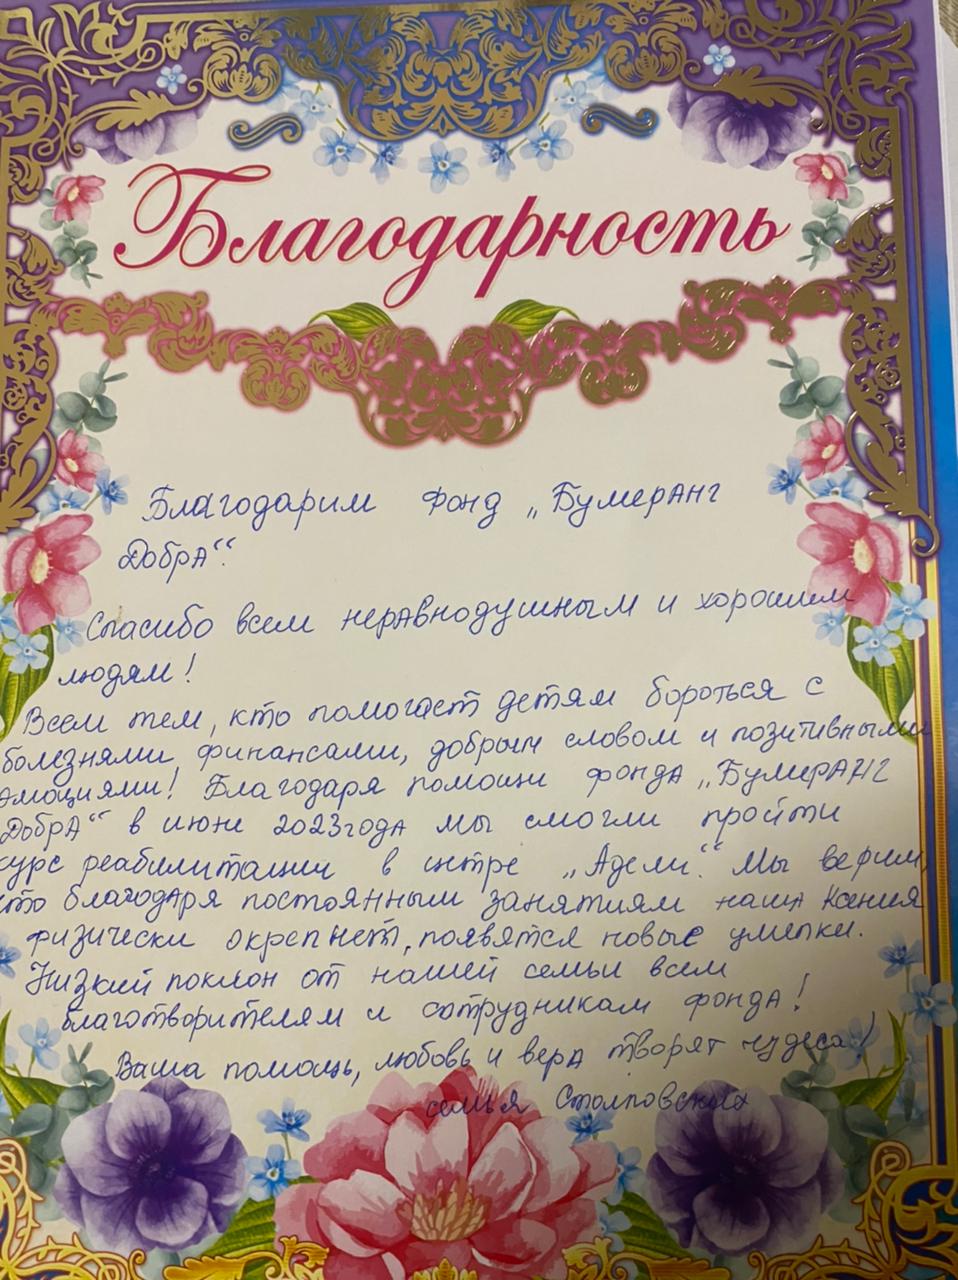 Благодарность
Благодарим фонд „Бумеранг
Добра“.
Спасибо всем неравнодушным и хорошим
людям!
Всем тем, кто помогает детям бороться с
болезнями, финансами, добрым словом и позитивными
эмоциями! Благодаря помощи фонда „Бумеранг
Добра“ в июне 2023года мы смогли пройти
курс реабилитации в цетре „Адели“. Мы верим,
что благодаря постоянным занятиям наша Ксения
физически окрепнет, появятся новые умелки.
Низкий поклон от нашей семьи всем
благотворителям и сотрудникам фонда!
Ваша помощь, любовь и вера творят чудеса!
семья Столповских